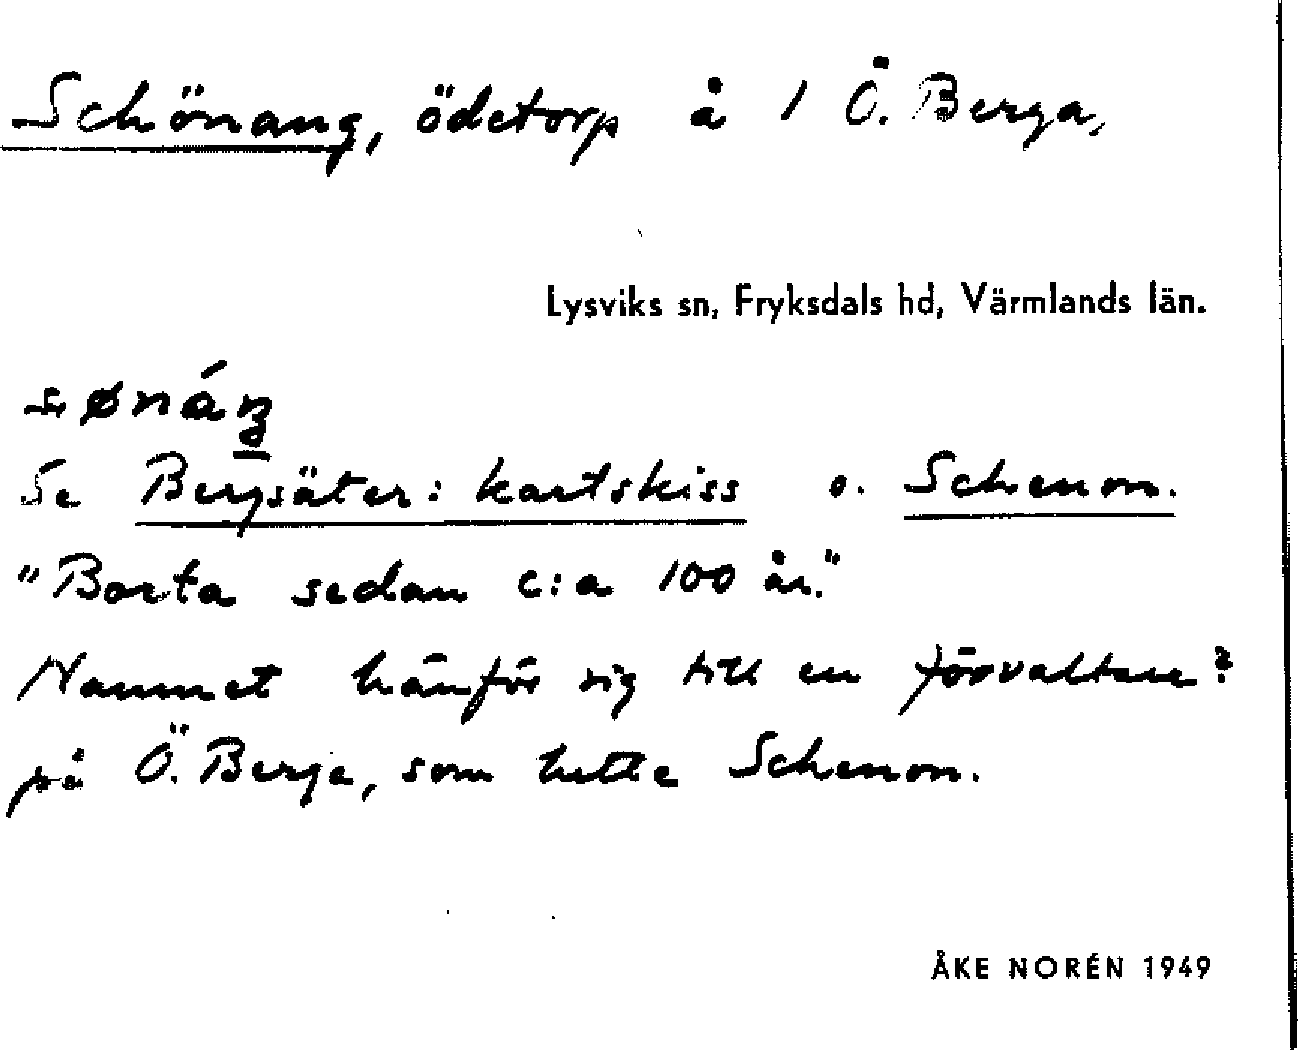 Schönang, ödetorp å 1 Ö. Berga,
Lysviks sn, Fryksdals hd, Värmlands län.
Se Bergsäter: kartskiss o. Schenon.
"Borta sedan c:a 100 år."
Namnet hänför sig till en förvaltare?
på Ö. Berga, som hette Schenon.
ÅKE NORÉN 1949